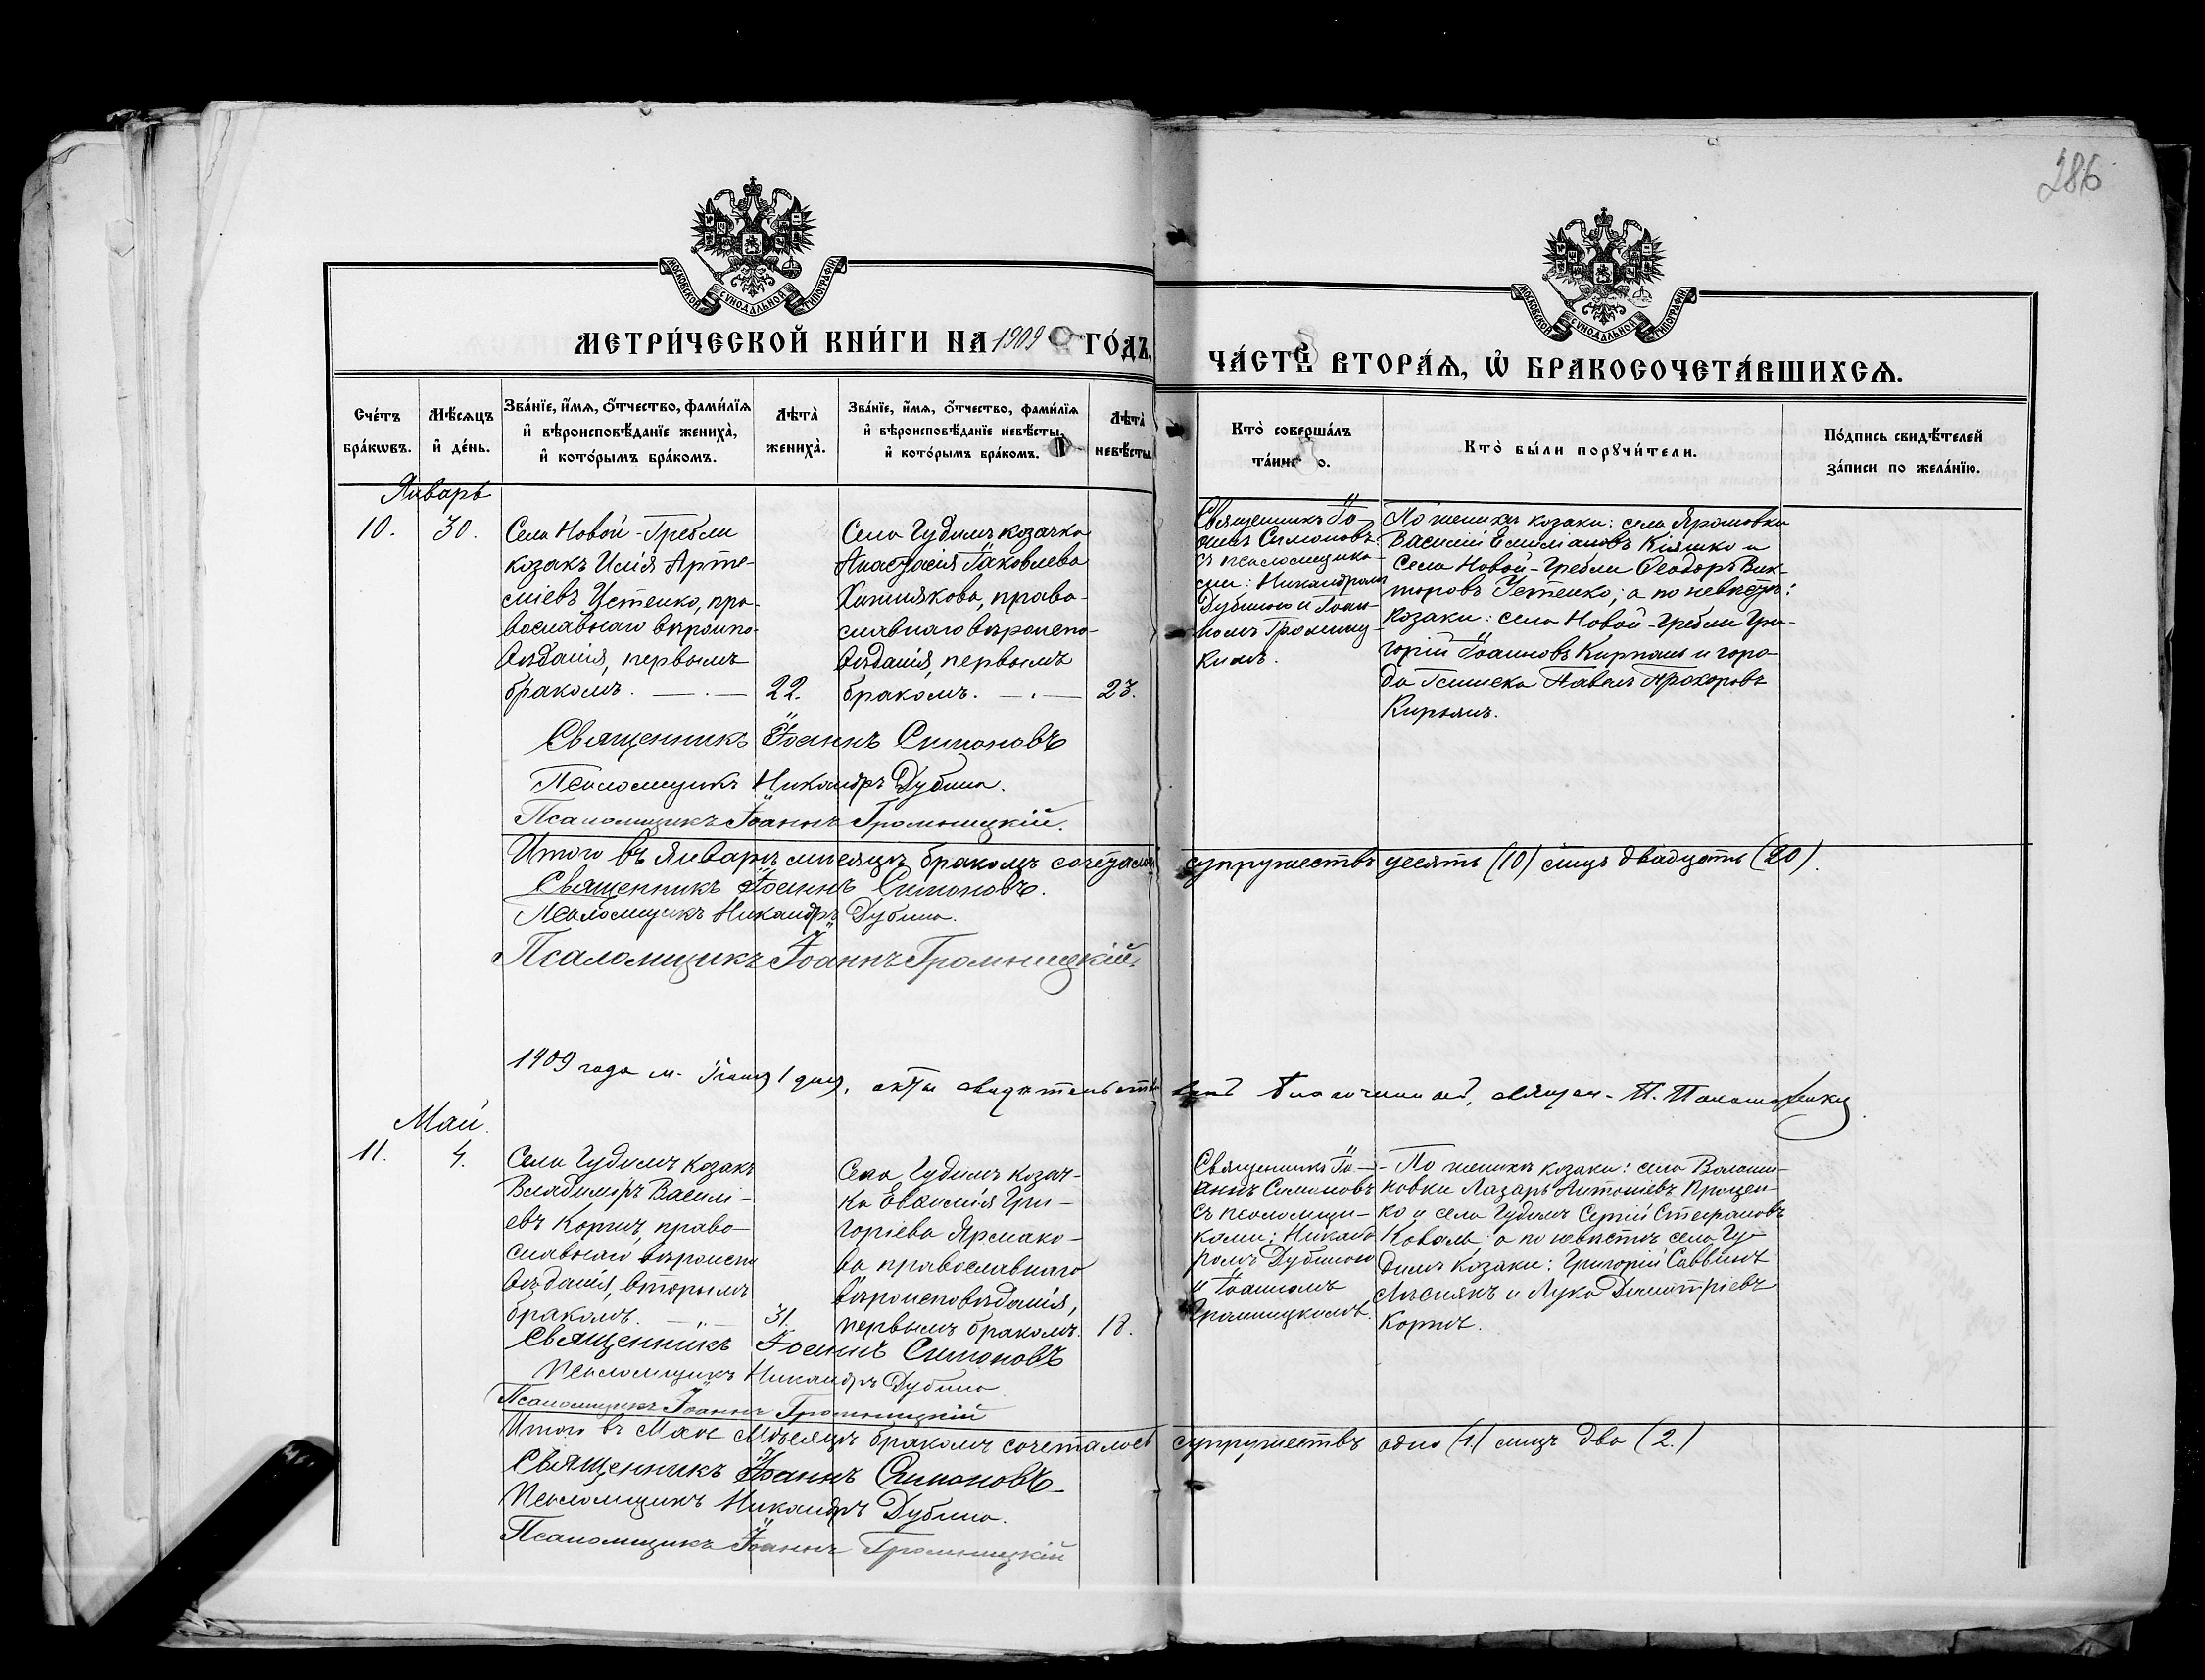 286
МОСКОВСКОЙ СѴНОДАЛЬНОЙ ТИПОГРАФІИ
МОСКОВСКОЙ СѴНОДАЛЬНОЙ ТИПОГРАФІИ
МЕТРИ́ЧЕСКОЙ КНИ́ГИ НА 1909 ГО́ДЪ,
ЧА́СТЬ ВТОРА́Ѧ, Ѡ҆ БРАКОСОЧЕТА́ВШИХСѦ.
Сче́тъ бра́кѡвъ.
Мѣ́сѧцъ и҆ де́нь.
Зва́нїе, и҆́мѧ, ѻ҆́тчество, фами́лїѧ
и҆ вѣроисповѣ́данїе жениха̀,
и҆ кото́рымъ бра́комъ.
Лѣта̀ жениха̀.
Зва́нїе, и҆́мѧ, ѻ҆́тчество, фами́лїѧ
и҆ вѣроисповѣ́данїе невѣ́сты,
и҆ кото́рымъ бра́комъ.
Лѣта̀ невѣ́сты.
Кто̀ соверша́лъ
та́инс о.
Кто̀ бы́ли порꙋчи́тели.
По́дпись свидѣ́телей
за́писи по жела́нїю.
Январь
10.
30.
Села Новой-Гребли
козакъ Илія Арте-
міевъ Устенко, пра-
вославнаго вѣроиспо-
вѣданія, первымъ
бракомъ.
22.
Села Гудимъ козачка
Анастасія Іаковлева
православнаго вѣроиспо-
вѣданія, первымъ
бракомъ.
23.
Священникъ Іо-
аннъ Симоновъ
съ псаломщика-
ми: Никандромъ
Дубиною и Іоан-
номъ Громниц-
кимъ.
По женихѣ козаки: села Ярошовки
Василій Емиліановъ Кіяшко и
села Новой-Гребли Ѳеодоръ Вик-
торовъ Устенко; а по невѣстѣ:
козаки: села Новой-Гребли Гри-
горій Іоанновъ и горо-
да Павелъ Прохоровъ
Священникъ Іоаннъ Симоновъ
Псаломщикъ Никандръ Дубина.
Псаломщикъ Іоаннъ Громницкій.
Итого въ Январѣ мѣсяцѣ бракомъ сочеталось супружествъ десять (10) лицъ двадцать (20).
Священникъ Іоаннъ Симоновъ.
Псаломщикъ Никандръ Дубина.
Псаломщикъ Іоаннъ Громницкій.
1909 года м. Іюня 1 дня, акты свидѣтельств Благочинный, священ. П.
Май.
11.
4.
Села Гудимъ козакъ
Владимиръ Василі-
евъ Коржъ, право-
славнаго вѣроиспо
вѣданія, вторымъ
бракомъ.
31.
Села Гудимъ козач-
ка Евѳимія Гри-
горіева Ярмако-
ва православнаго
вѣроисповѣданія,
первымъ бракомъ.
18.
Священникъ Іо-
аннъ Симоновъ
съ псаломщи-
ками: Никанд
ромъ Дубиною
и Іоанномъ
Громницкимъ.
По женихѣ козаки: села Волоши-
новки Лазарь Антоніевъ Процен-
ко и села Гудимъ Сергій Стефановъ
Коваль а по невѣстѣ села Гу-
димъ козаки: Григорій Саввинъ
Лѣснякъ и Лука Димитріевъ
Коржъ.
Священникъ Іоаннъ Симоновъ
Псаломщикъ Никандръ Дубина
Псаломщикъ Іоаннъ Громницкій
Итого въ Маѣ мѣсяцѣ бракомъ сочеталось супружествъ одно (1.) лицъ два (2.)
Священникъ Іоаннъ Симоновъ
Псаломщикъ Никандръ Дубина.
Псаломщикъ Іоаннъ Громницкій